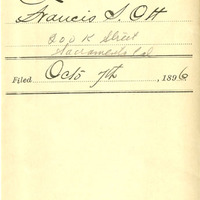 Francis S. Ott
200 K Street
Sacramento Cal
Filed Oct 7th, 1896